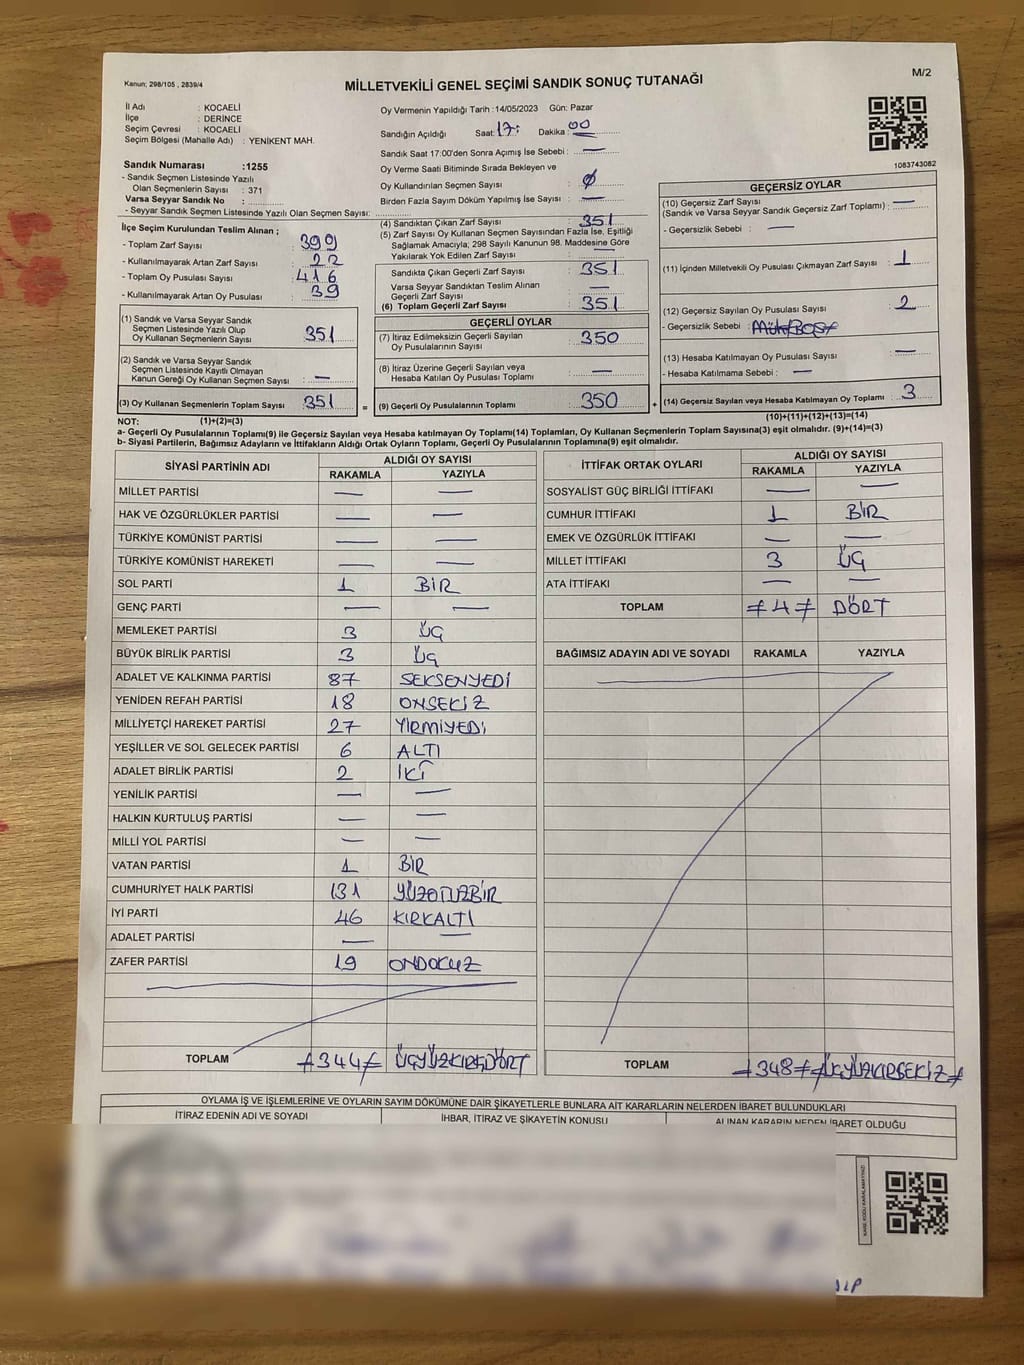 Kanun: 298/105 , 2839/4
MİLLETVEKİLİ GENEL SEÇİMİ SANDIK SONUÇ TUTANAĞI
M/2
İl Adı : KOCAELİ
İlçe : DERİNCE
Seçim Çevresi : KOCAELİ
Seçim Bölgesi (Mahalle Adı) : YENİKENT MAH.
Sandık Numarası :1255
- Sandık Seçmen Listesinde Yazılı
Olan Seçmenlerin Sayısı : 371
Varsa Seyyar Sandık No :
- Seyyar Sandık Seçmen Listesinde Yazılı Olan Seçmen Sayısı:
Oy Vermenin Yapıldığı Tarih :14/05/2023 Gün: Pazar
Sandığın Açıldığı Saat: 17: Dakika: 00
Sandık Saat 17:00'den Sonra Açımış İse Sebebi : —
Oy Verme Saati Bitiminde Sırada Bekleyen ve
Oy Kullandırılan Seçmen Sayısı : ø
Birden Fazla Sayım Döküm Yapılmış İse Sayısı : —
1083743082
İlçe Seçim Kurulundan Teslim Alınan ;
- Toplam Zarf Sayısı : 399
- Kullanılmayarak Artan Zarf Sayısı : 22
- Toplam Oy Pusulası Sayısı : 416
- Kullanılmayarak Artan Oy Pusulası : 39
(1) Sandık ve Varsa Seyyar Sandık
Seçmen Listesinde Yazılı Olup
Oy Kullanan Seçmenlerin Sayısı : 351
(2) Sandık ve Varsa Seyyar Sandık
Seçmen Listesinde Kayıtlı Olmayan
Kanun Gereği Oy Kullanan Seçmen Sayısı : —
(3) Oy Kullanan Seçmenlerin Toplam Sayısı : 351
(1)+(2)=(3)
(4) Sandıktan Çıkan Zarf Sayısı : 351
(5) Zarf Sayısı Oy Kullanan Seçmen Sayısından Fazla İse, Eşitliği
Sağlamak Amacıyla; 298 Sayılı Kanunun 98. Maddesine Göre
Yakılarak Yok Edilen Zarf Sayısı : —
Sandıkta Çıkan Geçerli Zarf Sayısı : 351
Varsa Seyyar Sandıktan Teslim Alınan
Geçerli Zarf Sayısı : —
(6) Toplam Geçerli Zarf Sayısı : 351
GEÇERLİ OYLAR
(7) İtiraz Edilmeksizin Geçerli Sayılan
Oy Pusulalarının Sayısı : 350
(8) İtiraz Üzerine Geçerli Sayılan veya
Hesaba Katılan Oy Pusulası Toplamı : —
= (9) Geçerli Oy Pusulalarının Toplamı : 350
GEÇERSİZ OYLAR
(10) Geçersiz Zarf Sayısı
(Sandık ve Varsa Seyyar Sandık Geçersiz Zarf Toplamı) : —
- Geçersizlik Sebebi : —
(11) İçinden Milletvekili Oy Pusulası Çıkmayan Zarf Sayısı : 1
(12) Geçersiz Sayılan Oy Pusulası Sayısı : 2
- Geçersizlik Sebebi :
(13) Hesaba Katılmayan Oy Pusulası Sayısı : —
- Hesaba Katılmama Sebebi : —
+ (14) Geçersiz Sayılan veya Hesaba Katılmayan Oy Toplamı : 3
(10)+(11)+(12)+(13)=(14)
NOT:
a- Geçerli Oy Pusulalarının Toplamı(9) ile Geçersiz Sayılan veya Hesaba Katılmayan Oy Toplamı(14) Toplamları, Oy Kullanan Seçmenlerin Toplam Sayısına(3) eşit olmalıdır. (9)+(14)=(3)
b- Siyasi Partilerin, Bağımsız Adayların ve İttifakların Aldığı Ortak Oyların Toplamı, Geçerli Oy Pusulalarının Toplamına(9) eşit olmalıdır.
SİYASİ PARTİNİN ADI ALDIĞI OY SAYISI
RAKAMLA YAZIYLA
MİLLET PARTİSİ — —
HAK VE ÖZGÜRLÜKLER PARTİSİ — —
TÜRKİYE KOMÜNİST PARTİSİ — —
TÜRKİYE KOMÜNİST HAREKETİ — —
SOL PARTİ 1 BİR
GENÇ PARTİ — —
MEMLEKET PARTİSİ 3 ÜÇ
BÜYÜK BİRLİK PARTİSİ 3 ÜÇ
ADALET VE KALKINMA PARTİSİ 87 SEKSENYEDİ
YENİDEN REFAH PARTİSİ 18 ONSEKİZ
MİLLİYETÇİ HAREKET PARTİSİ 27 YİRMİYEDİ
YEŞİLLER VE SOL GELECEK PARTİSİ 6 ALTI
ADALET BİRLİK PARTİSİ 2 İKİ
YENİLİK PARTİSİ — —
HALKIN KURTULUŞ PARTİSİ — —
MİLLİ YOL PARTİSİ — —
VATAN PARTİSİ 1 BİR
CUMHURİYET HALK PARTİSİ 131 YÜZOTUZBİR
İYİ PARTİ 46 KIRKALTI
ADALET PARTİSİ — —
ZAFER PARTİSİ 19 ONDOKUZ
TOPLAM ≠344≠ ÜÇYÜZKIRKDÖRT
İTTİFAK ORTAK OYLARI ALDIĞI OY SAYISI
RAKAMLA YAZIYLA
SOSYALİST GÜÇ BİRLİĞİ İTTİFAKI — —
CUMHUR İTTİFAKI 1 BİR
EMEK VE ÖZGÜRLÜK İTTİFAKI — —
MİLLET İTTİFAKI 3 ÜÇ
ATA İTTİFAKI — —
TOPLAM ≠4≠ DÖRT
BAĞIMSIZ ADAYIN ADI VE SOYADI RAKAMLA YAZIYLA
TOPLAM ≠348≠ ≠ÜÇYÜZKIRSEKİZ≠
OYLAMA İŞ VE İŞLEMLERİNE VE OYLARIN SAYIM DÖKÜMÜNE DAİR ŞİKAYETLERLE BUNLARA AİT KARARLARIN NELERDEN İBARET BULUNDUKLARI
İTİRAZ EDENİN ADI VE SOYADI İHBAR, İTİRAZ VE ŞİKAYETİN KONUSU ALINAN KARARIN NEDEN İBARET OLDUĞU
KARE KODU KARALAMAYINIZ!